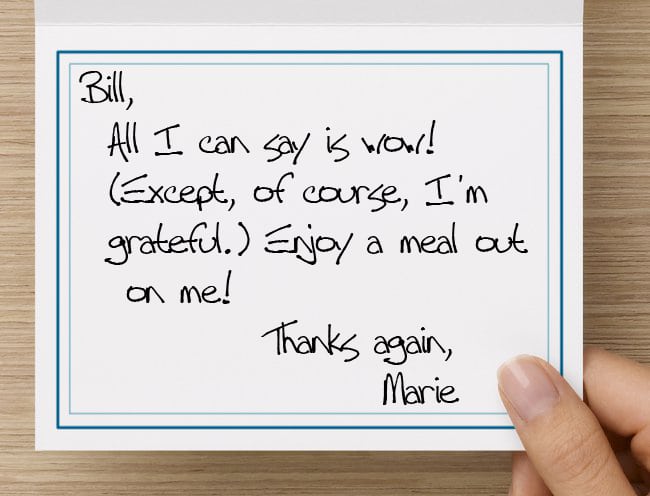 Bill,
All I can say is wow!
(Except, of course, I'm
grateful.) Enjoy a meal out
on me!
Thanks again,
Marie